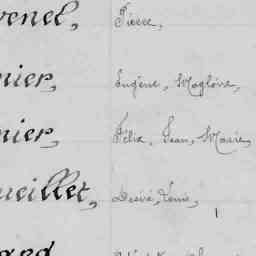 venel, Pierre,
nier, Eugène, Magloire,
nier, Félix, Jean, Marie,
ueillet, Desiré, Louis,
ard